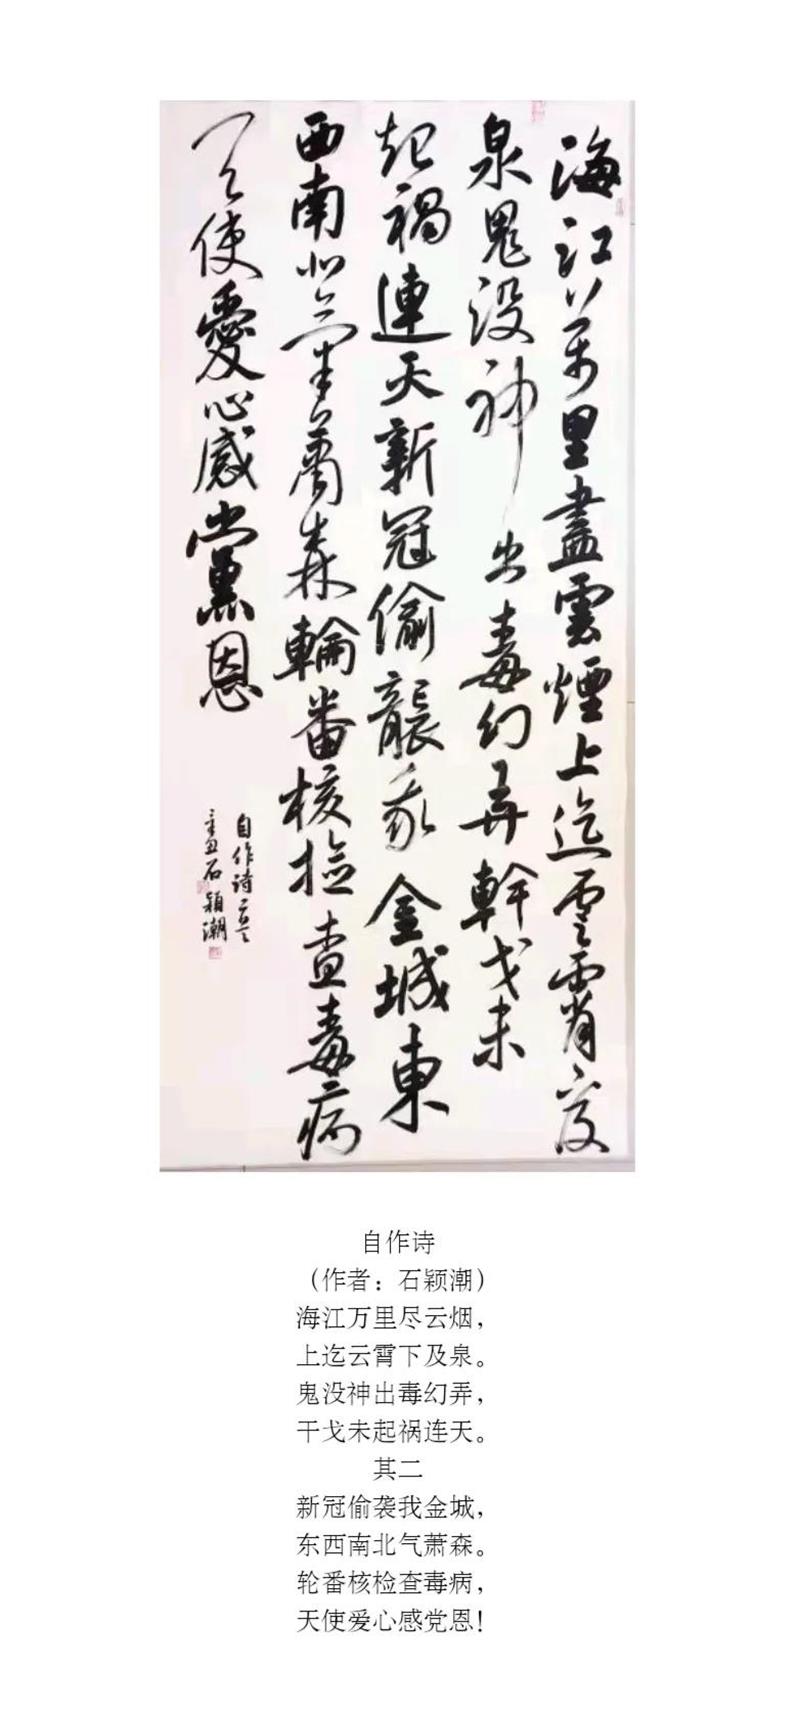 海江万里盡雲煙上迄雲霄下及
泉鬼没神出毒幻弄幹戈未
起禍連天新冠偷襲我金城東
西南北氣蕭森輪番核檢查毒病
天使愛心感黨恩
自作詩二首
石穎潮
自作诗
（作者：石颖潮）
海江万里尽云烟，
上迄云霄下及泉。
鬼没神出毒幻弄，
干戈未起祸连天。
其二
新冠偷袭我金城，
东西南北气萧森。
轮番核检查毒病，
天使爱心感党恩！